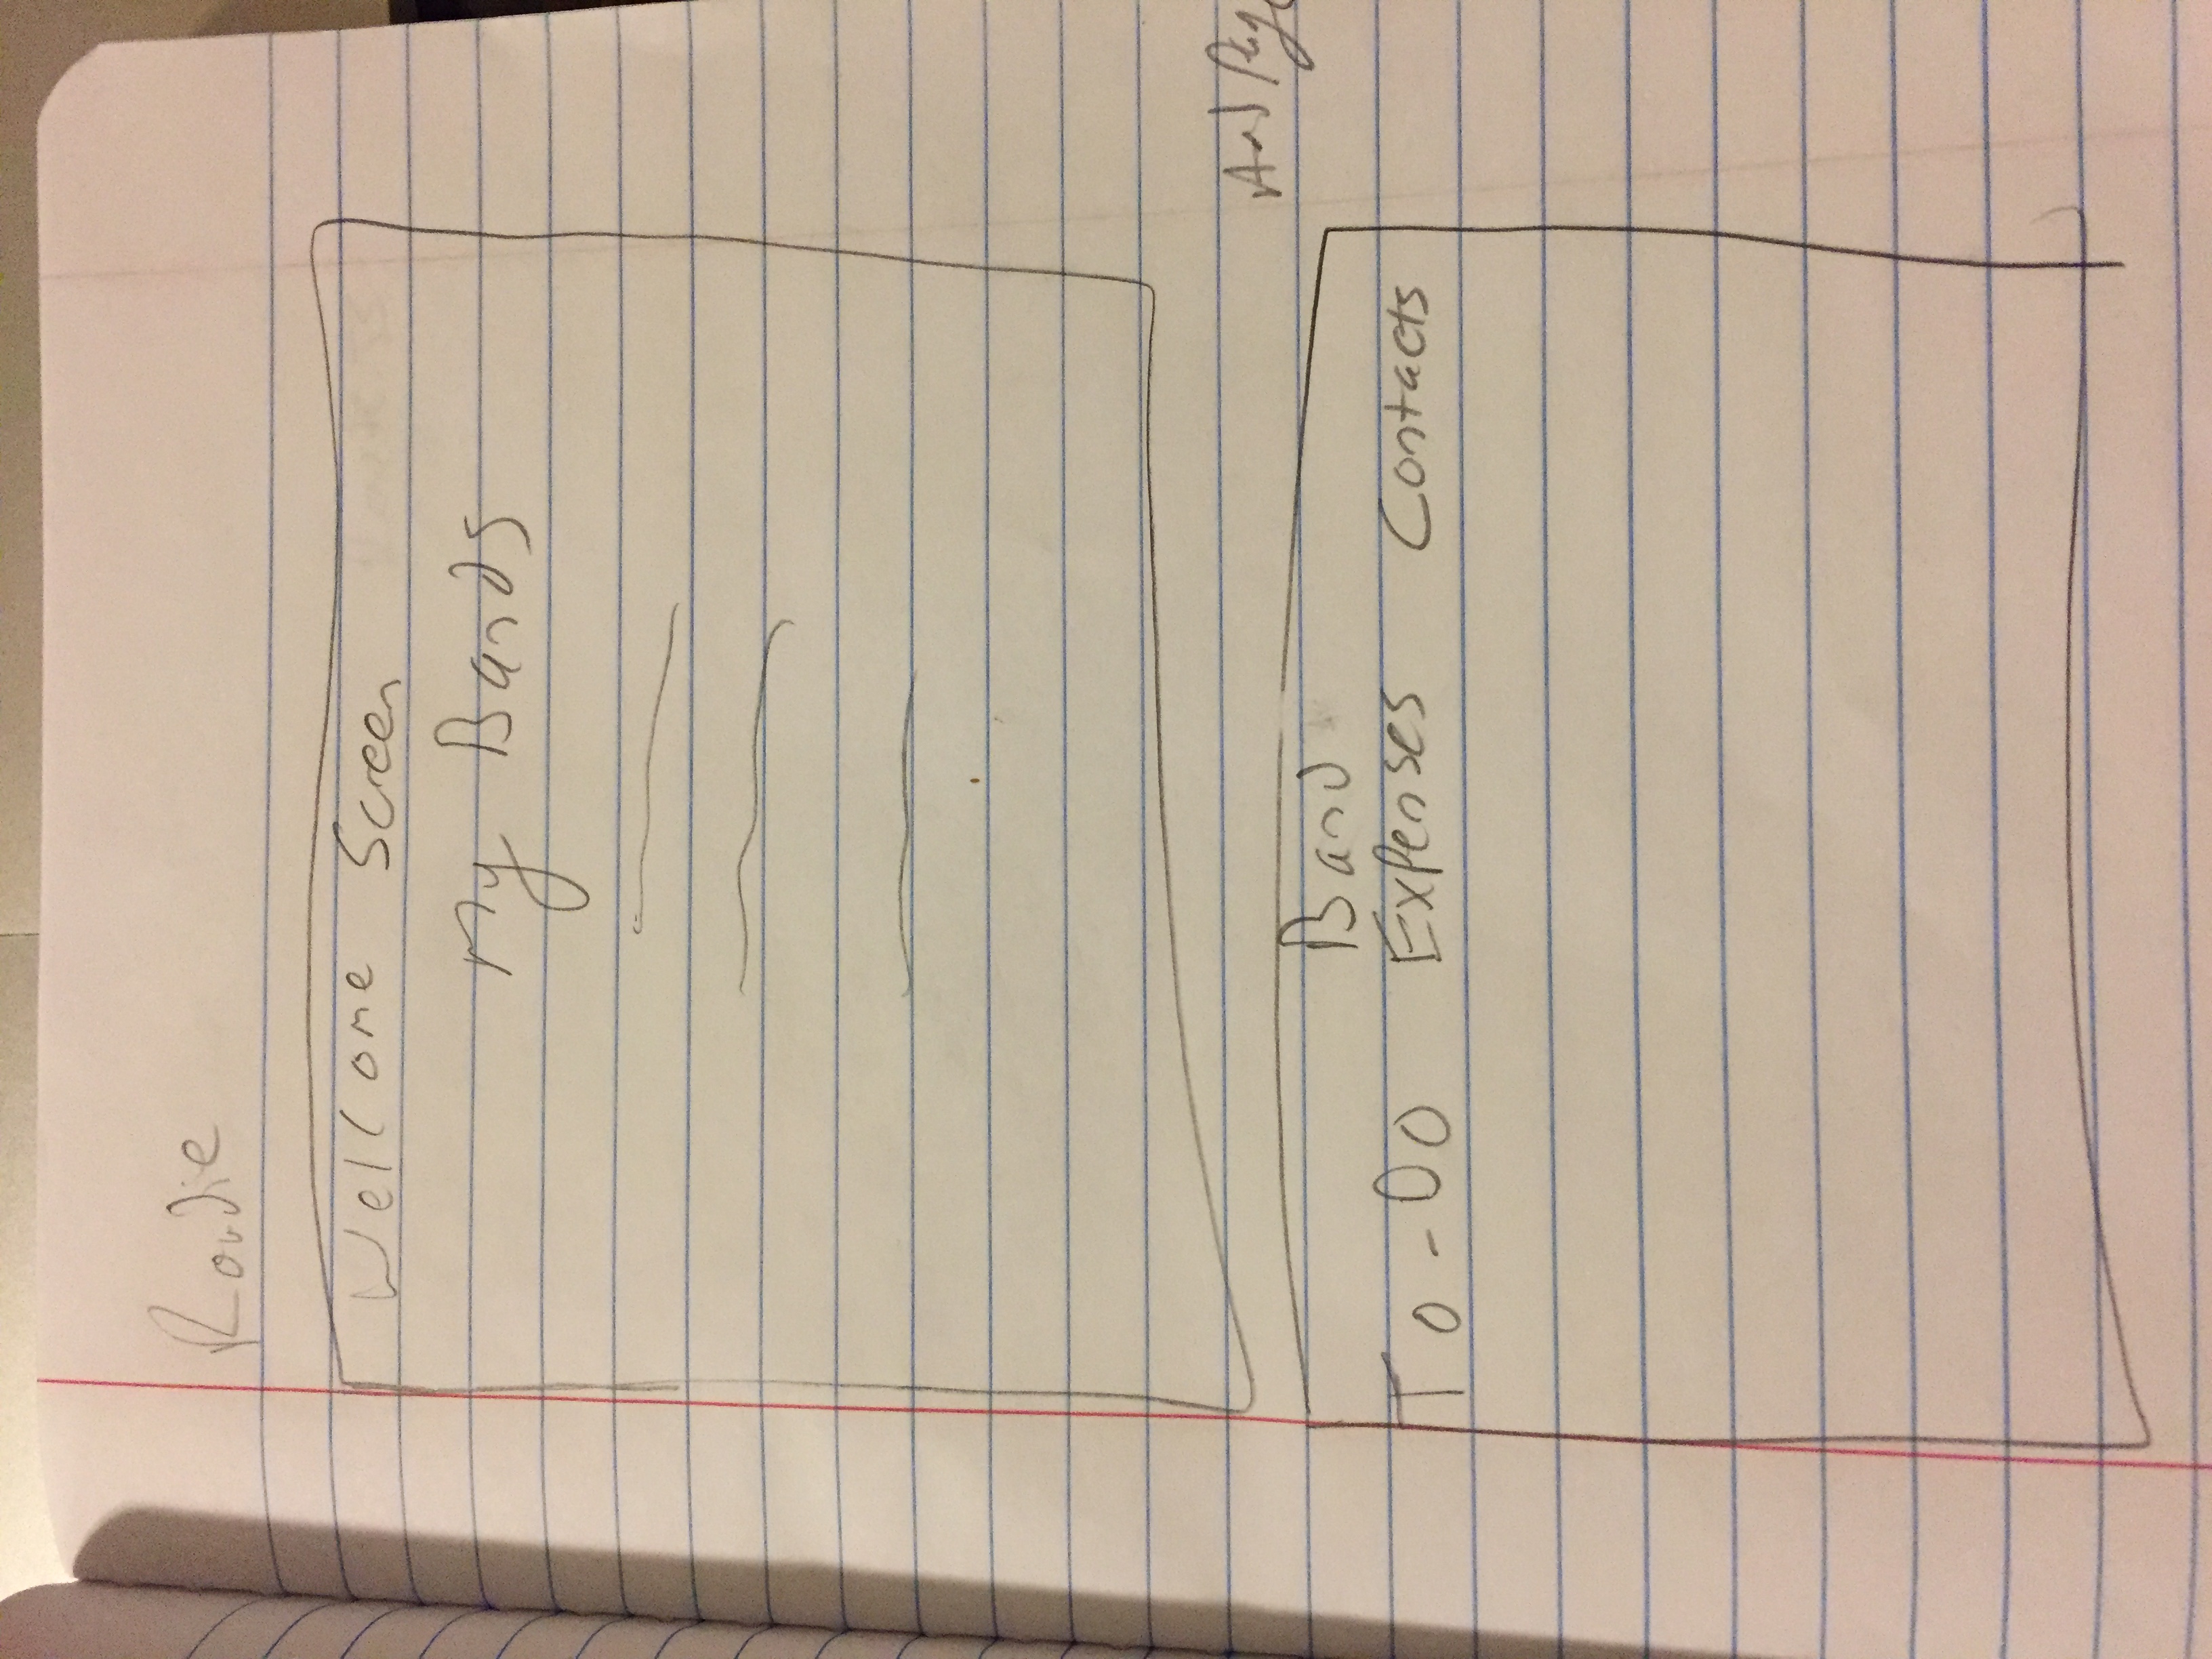 Roadie
Welcome Screen
My Bands
Band
To-Do Expenses Contacts